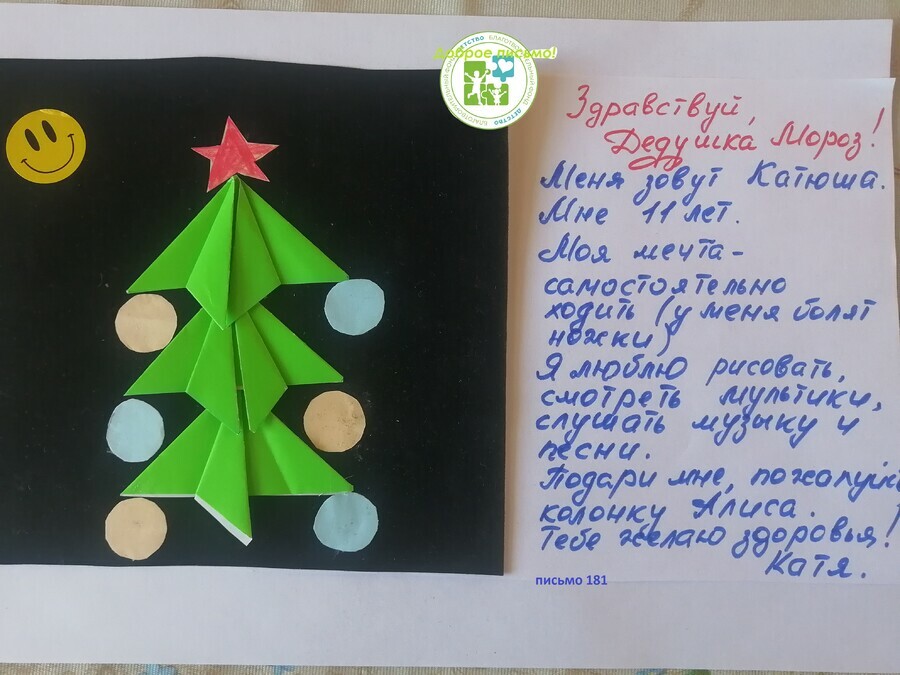 Доброе письмо!
БЛАГОТВОРИТЕЛЬНЫЙ ФОНД ДЕТСТВО
Здравствуй,
Дедушка Мороз!
Меня зовут Катюша.
Мне 11 лет.
Моя мечта-
самостоятельно
ходить (у меня болят
ножки)
Я люблю рисовать,
смотреть мультики,
слушать музыку и
песни.
Подари мне, пожалуйста
колонку Алиса.
Тебе желаю здоровья!
Катя.
письмо 181